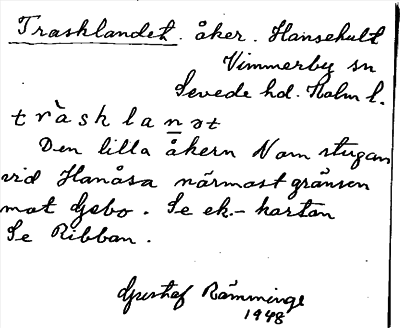 Trasklandet. åker. Hansehult
Vimmerby sn
Sevede hd. Kalm l.
tràsklanət
Den lilla åkern N om stugan
vid Hanåsa närmast gränsen
mot Gebo. Se ek.-kartan
Se Ribban.
Gustaf Rämminge
1948